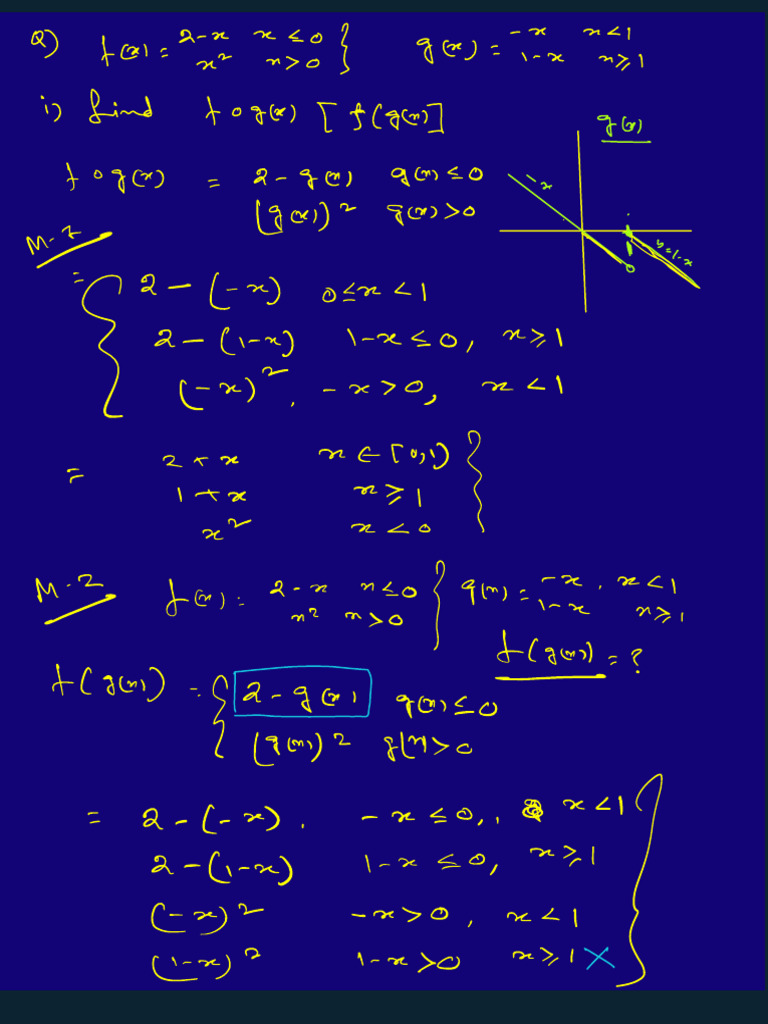 Q) f(x) = 2-x x ≤ 0 } g(x) = -x x < 1
x² x > 0 1-x x ≥ 1
i) find fog(x) [f(g(x)]
g(x)
fog(x) = 2 - g(x) g(x) ≤ 0
(g(x))² g(x) > 0
-x
y=1-x
M-1
= { 2 - (-x) 0 ≤ x < 1
2 - (1-x) 1-x ≤ 0, x ≥ 1
(-x)², -x > 0, x < 1
= 2+x x ∈ [0,1) }
1+x x ≥ 1
x² x < 0
M-2 f(x) = 2-x x ≤ 0 } g(x) = -x, x < 1
x² x > 0 1-x x ≥ 1
f(g(x)) = ?
f(g(x)) = { 2 - g(x) g(x) ≤ 0
(g(x))² g(x) > 0
= 2 - (-x). -x ≤ 0, x < 1 }
2 - (1-x) 1-x ≤ 0, x ≥ 1
(-x)² -x > 0, x < 1
(1-x)² 1-x > 0 x ≥ 1 ×